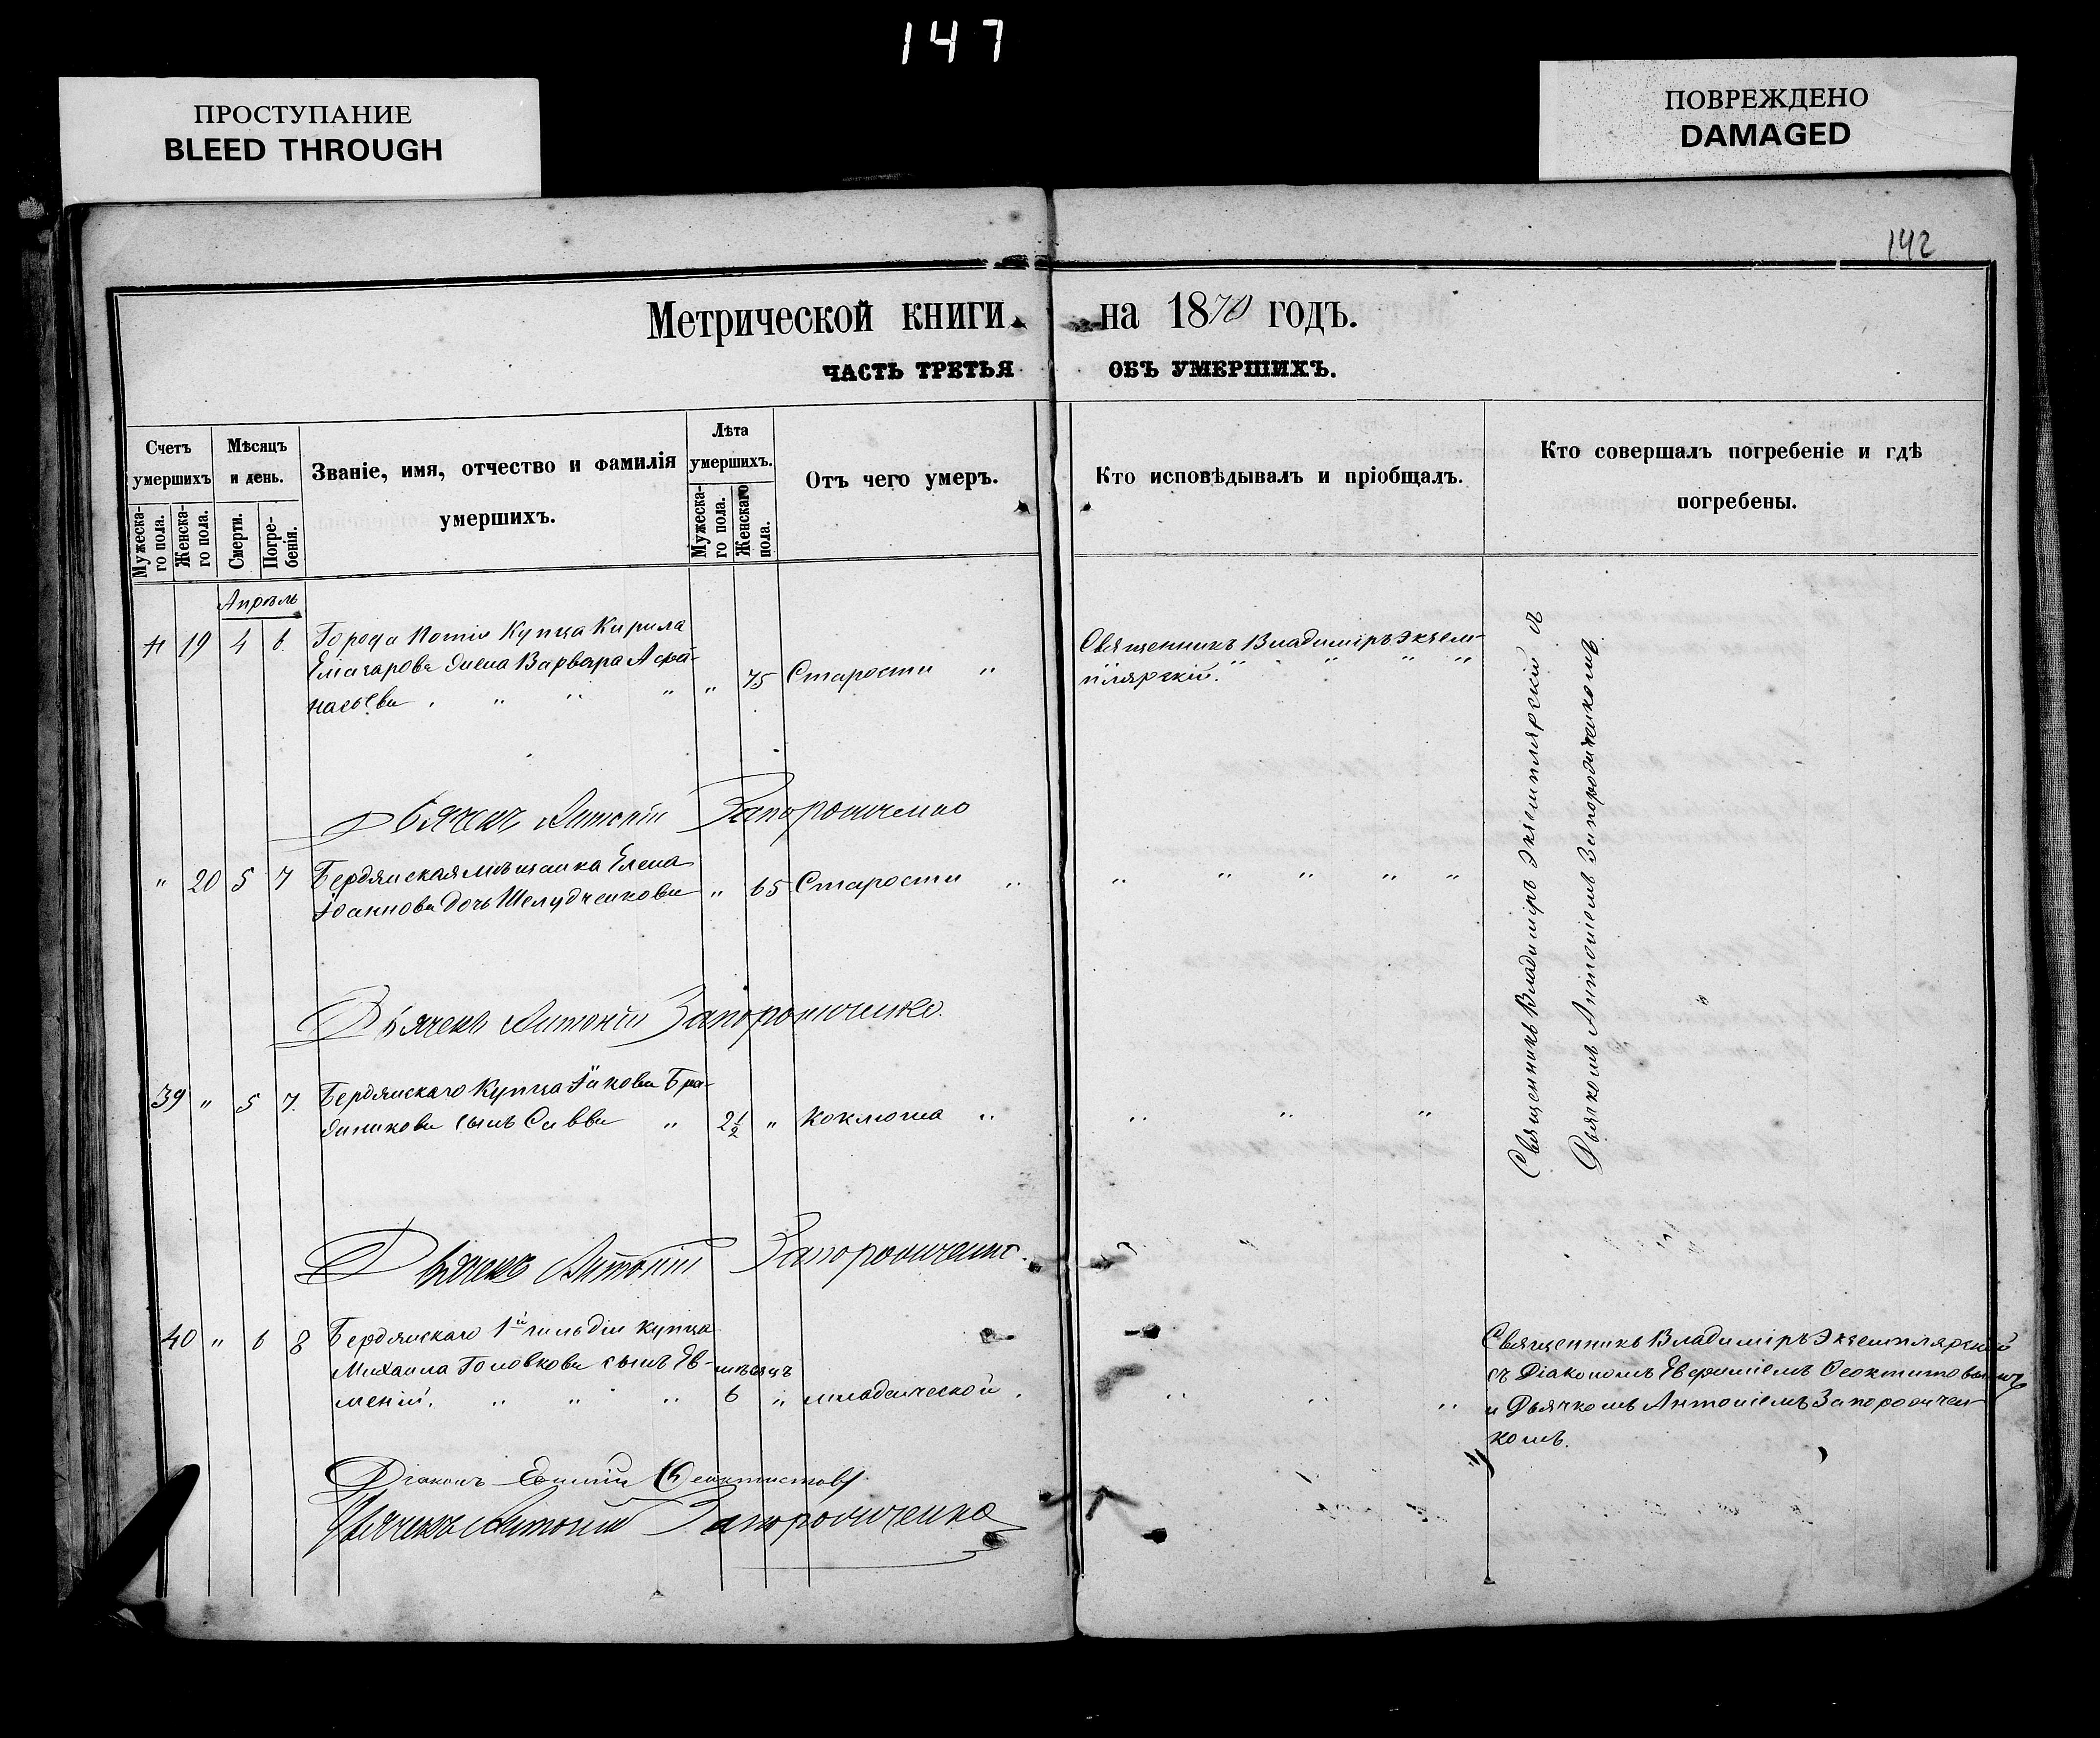 147
ПРОСТУПАНИЕ
BLEED THROUGH
ПОВРЕЖДЕНО
DAMAGED
142
Метрической книги на 1870 годъ.
ЧАСТЬ ТРЕТЬЯ ОБЪ УМЕРШИХЪ.
Счетъ умершихъ
Мужеска-го пола.
Женска-го пола.
Мѣсяцъ и день.
Смерти.
Погре-бенія.
Званіе, имя, отчество и фамилія умершихъ.
Лѣта умершихъ.
Мужеска-го пола.
Женскаго пола.
Отъ чего умеръ.
Кто исповѣдывалъ и пріобщалъ.
Кто совершалъ погребеніе и гдѣ погребены.
Апрѣль
19 4 6. Города Купца Кирила
жена Варвара Афа-
насьева " " " " 75 Старости "
Священникъ Владиміръ Экзем-
плярскій. " " " "
Дьячекъ Антоній Запорожченко
" 20 5 7 Бердянская мѣщанка Елена
Іоаннова дочь Шелудченкова " 65 Старости "
" " " " "
Дьячекъ Антоній Запорожченко.
39 " 5 7. Бердянскаго Купца Іакова Бра-
диникова сынъ Савва " 2½ " Коклюша "
" " "
Дьячекъ Антоній Запорожченко.
Священникъ Владиміръ Экземплярскій съ
Дьячкомъ Антоніемъ Запорожченкомъ
40 " 6 8 Бердянскаго 1й гильдіи купца
Михаила Головкова сынъ Ев- мѣсяцъ
меній. " " " 6 " младенческой.
" " "
Священникъ Владиміръ Экземплярскій
съ Діакономъ Евфиміемъ Ѳеоктистовымъ
и Дьячкомъ Антоніемъ Запорожчен-
комъ.
Діаконъ Ѳеоктистовъ
Дьячекъ Антоній Запорожченко